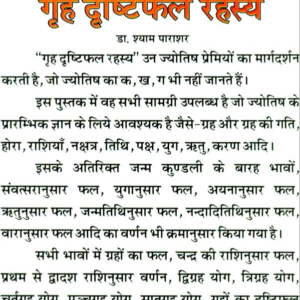 गृह दृष्टिफल रहस्य
डा. श्याम पाराशर
“गृह दृष्टिफल रहस्य” उन ज्योतिष प्रेमियों का मार्गदर्शन
करती है, जो ज्योतिष का क, ख, ग भी नहीं जानते हैं।
इस पुस्तक में वह सभी सामग्री उपलब्ध है जो ज्योतिष के
प्रारम्भिक ज्ञान के लिये आवश्यक है जैसे–ग्रह और ग्रह की गति,
होरा, राशियाँ, नक्षत्र, तिथि, पक्ष, युग, ऋतु, करण आदि।
इसके अतिरिक्त जन्म कुण्डली के बारह भावों,
संवत्सरानुसार फल, युगानुसार फल, अयनानुसार फल,
ऋतुनुसार फल, जन्मतिथिनुसार फल, नन्दादितिथिनुसार फल,
वारानुसार फल आदि का वर्णन भी क्रमानुसार किया गया है।
सभी भावों में ग्रहों का फल, चन्द्र की राशिनुसार फल,
प्रथम से द्वादश राशिनुसार वर्णन, द्विग्रह योग, त्रिग्रह योग,